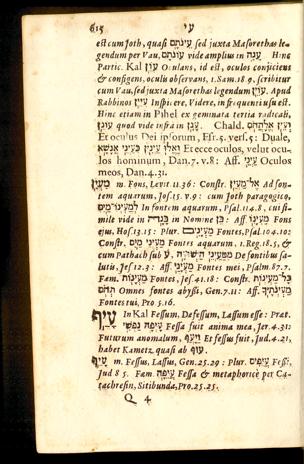 615 עי
est cum Joth, quasi עינתם sed juxta Masorethas le-
gendum per Vau, עונתם vide amplius in ענה Hinc
Partic. Kal עוין Oculans, id est, oculos conjiciens
& configens, oculis observans, 1.Sam.18.9. scribitur
cum Vau, sed juxta Masorethas legendum עיין Apud
Rabbinos עיין Inspicere, Videre, in frequenti usu est.
Hinc etiam in Pihel ex geminata tertia radicali,
quod vide infra in ענן Chald.
Et oculus Dei ipsorum, Esr.5. vers.5: Duale,
Et ecce oculos, velut ocu-
los hominum, Dan.7.v.8: Aff. עיני Oculos
meos, Dan.4.31.
מעין m. Fons, Levit.11.36: Constr. אל־מעין Ad fon-
tem aquarum, Jos.15.v.9: cum Joth paragogico,
למעינו־מים In fontem aquarum, Psal.114.8, cui si-
mile vide in in Nomine בן: Aff. מעינו Fons
ejus, Hos.13.15: Plur. מעינים Fontes, Psal.104.10:
Constr. מעיני מים Fontes aquarum, 1.Reg.18.5, &
cum Pathach sub ע De fontibus sa-
lutis, Jes.12.3: Aff. מעיני Fontes mei, Psalm.87.7.
Fœm. מעינות Fontes, Jes.41.18: Constr. כל־מעינות
תהום Omnes fontes abyssi, Gen.7.11: Aff. מעינתיך
Fontes tui, Pro.5.16.
עיף In Kal Fessum, Defessum, Lassum esse: Præt.
עיפה נפשי Fessa fuit anima mea, Jer.4.31:
Futurum anomalum, ויעף Et fessus fuit, Jud.4.21,
habet Kametz quasi ab עוף
עיף m. Fessus, Lassus, Gen.25.29: Plur. עיפים Fessi,
Jud 8 5. Fœm. עיפה Fessa & metaphoricè per Ca-
tachresin, Sitibunda, Pro.25.25.
Q 4